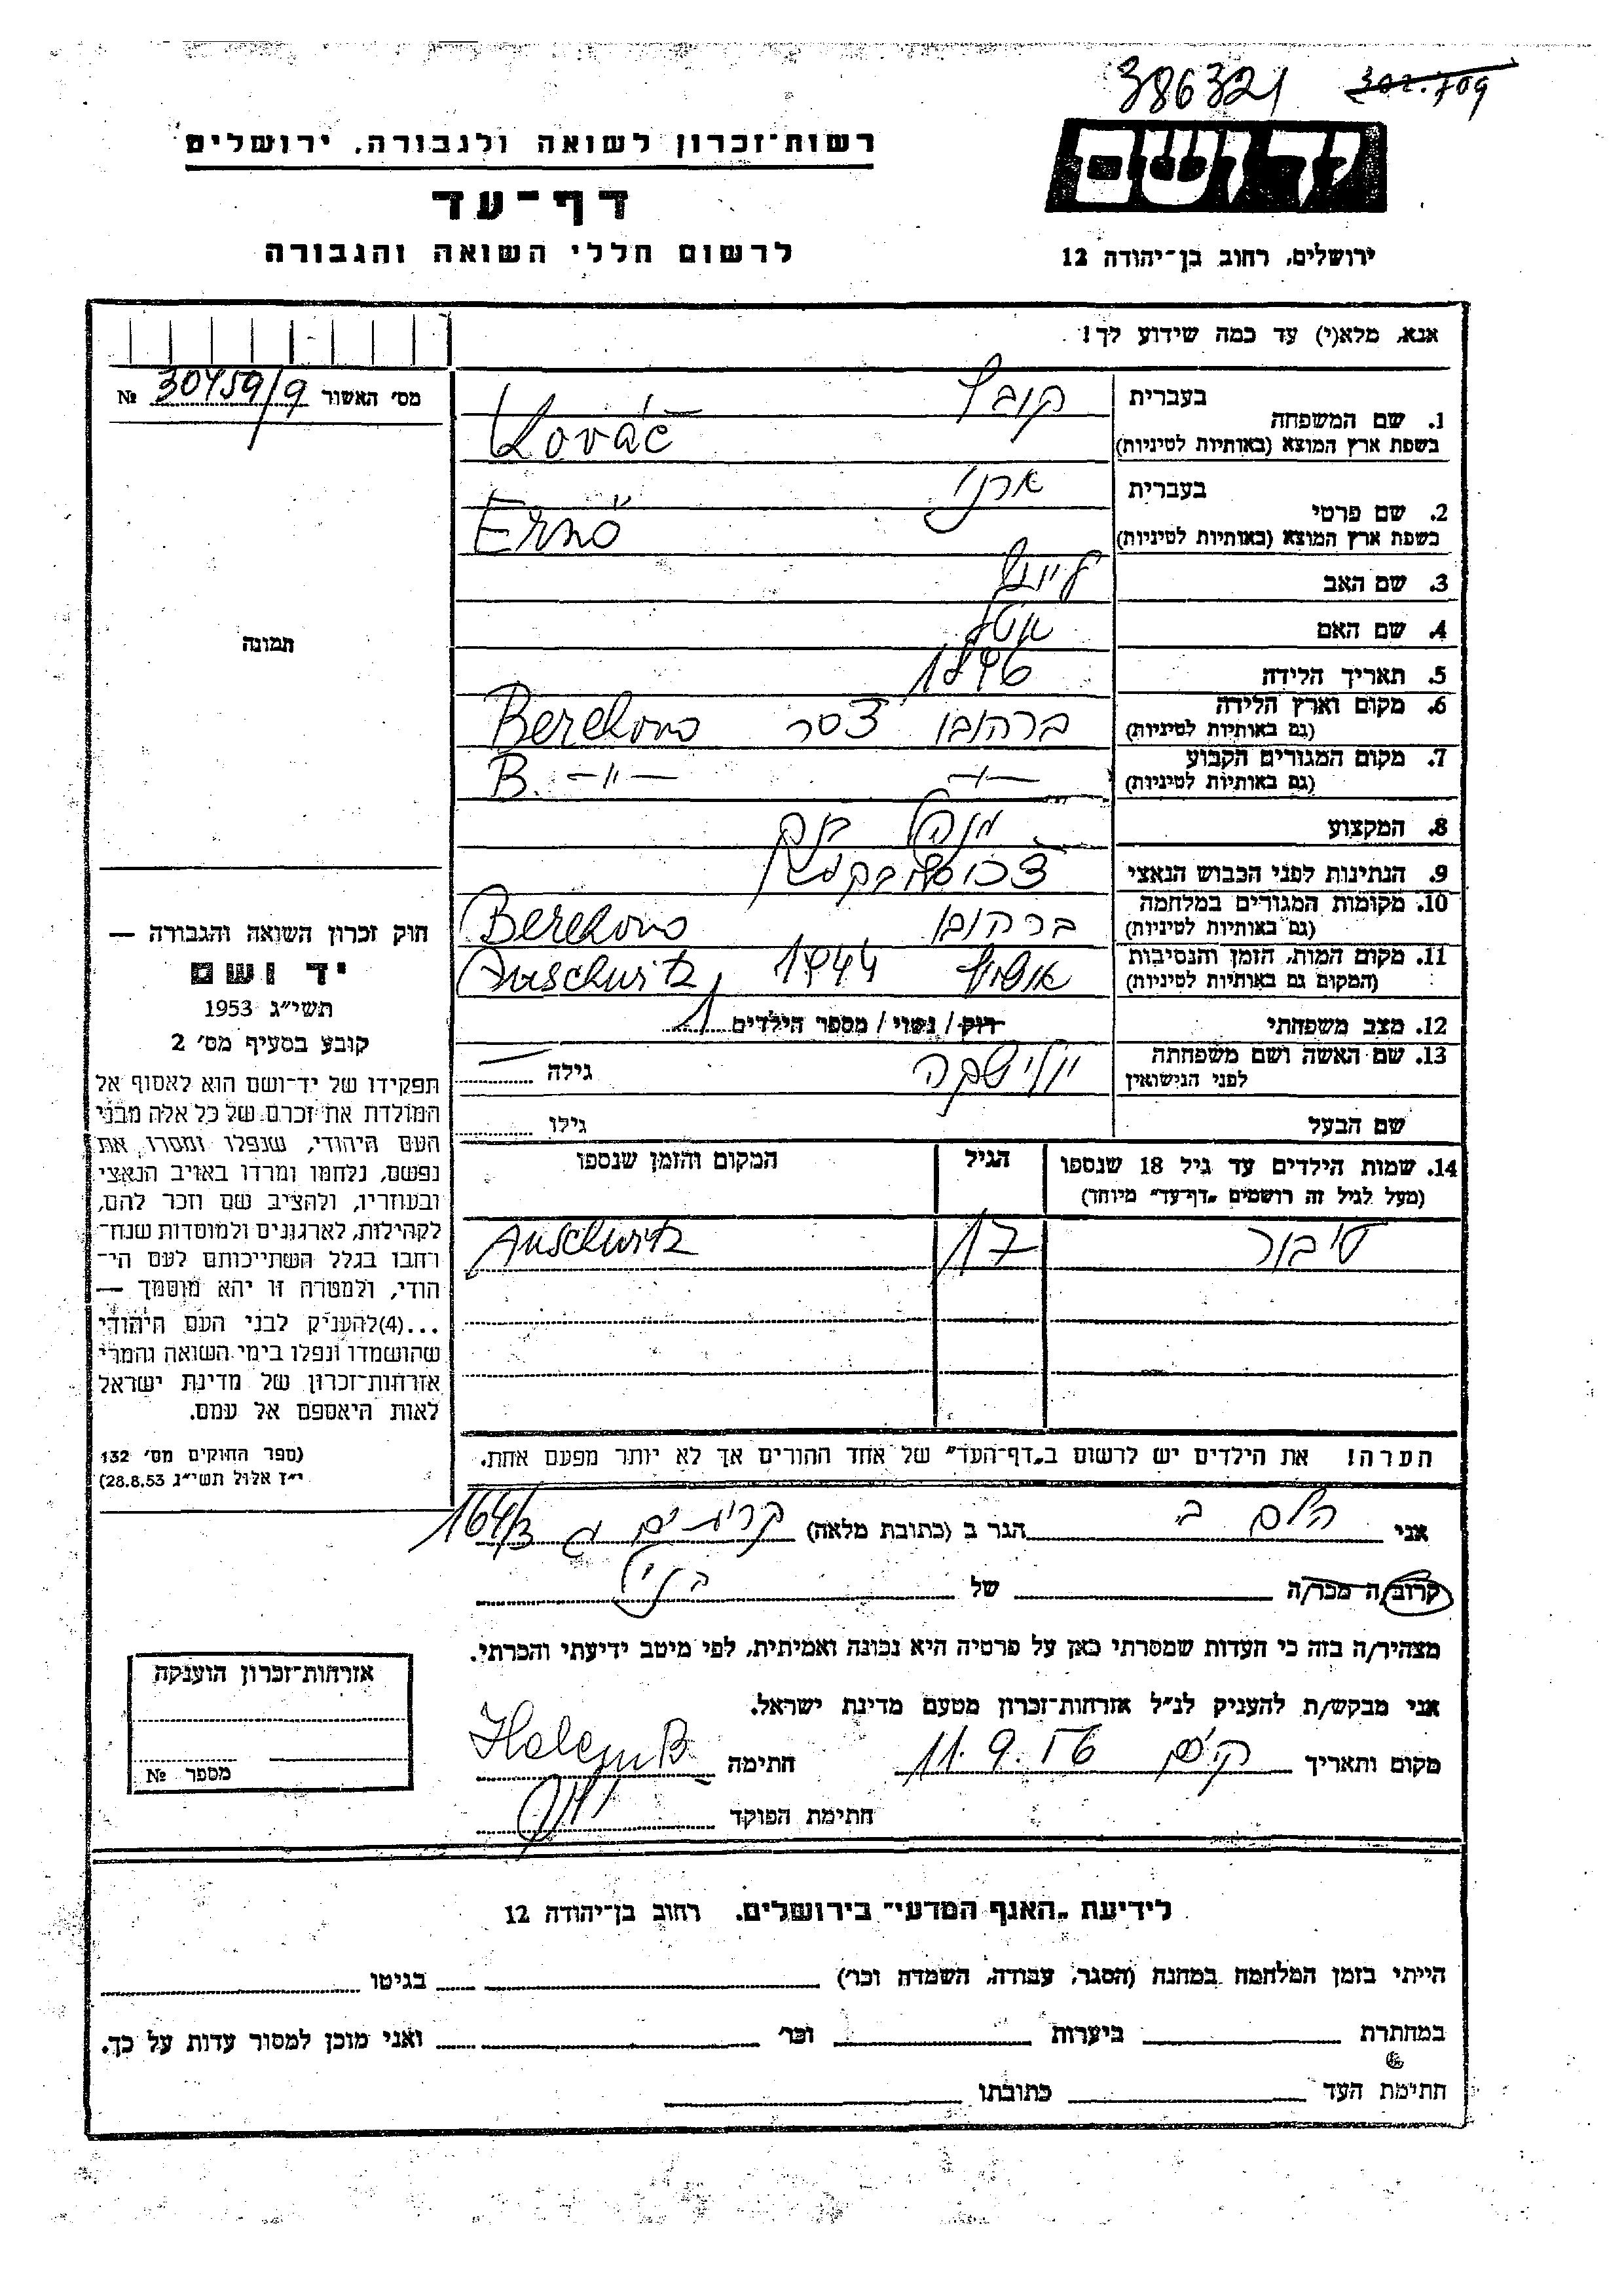 386321
302.709
רשות־זכרון לשואה ולגבורה, ירושלים
יד ושם
דף־עד
לרשום חללי השואה והגבורה
ירושלים, רחוב בן־יהודה 12
אנא, מלא(י) עד כמה שידוע לך!
מס׳ האשור 30459/9 №
תמונה
1. שם המשפחה
בעברית קובץ
בשפת ארץ המוצא (באותיות לטיניות) Kováč
2. שם פרטי
בעברית ארני
בשפת ארץ המוצא (באותיות לטיניות) Ernő
3. שם האב
4. שם האם
5. תאריך הלידה 1896
6. מקום וארץ הלידה ברהובו צסר Berehovo
(גם באותיות לטיניות)
7. מקום המגורים הקבוע —״— B. —״—
(גם באותיות לטיניות)
8. המקצוע מנהל
9. הנתינות לפני הכבוש הנאצי
10. מקומות המגורים במלחמה ברהובו Berehovo
(גם באותיות לטיניות)
11. מקום המות, הזמן והנסיבות 1944 Auschwitz
(המקום גם באותיות לטיניות)
12. מצב משפחתי רוק / נשוי / מספר הילדים 1
13. שם האשה ושם משפחתה יולישקה גילה —
לפני הנישואין
שם הבעל גילו
14. שמות הילדים עד גיל 18 שנספו הגיל המקום והזמן שנספו
(מעל לגיל זה רושמים „דף־עד״ מיוחד)
טיבור 17 Auschwitz
הערה! את הילדים יש לרשום ב„דף־העד״ של אחד ההורים אך לא יותר מפעם אחת.
חוק זכרון השואה והגבורה —
יד ושם
תשי״ג 1953
קובע בסעיף מס׳ 2
תפקידו של יד־ושם הוא לאסוף אל
המולדת את זכרם של כל אלה מבני
העם היהודי, שנפלו ומסרו את
נפשם, נלחמו ומרדו באויב הנאצי
ובעוזריו, ולהציב שם וזכר להם,
לקהילות, לארגונים ולמוסדות שנח־
רחבו בגלל השתייכותם לעם הי־
הודי, ולמטרה זו יהא מוסמך —
...(4)להעניק לבני העם היהודי
שהושמדו ונפלו בימי השואה והמרי
אזרחות־זכרון של מדינת ישראל
לאות היאספם אל עמם.
(ספר החוקים מס׳ 132
י״ז אלול תשי״ג 28.8.53)
אני ב הגר ב (כתובת מלאה) קרית ים ג 164/3
קרוב/ה מכר/ה של
מצהיר/ה בזה כי העדות שמסרתי כאן על פרטיה היא נכונה ואמיתית, לפי מיטב ידיעתי והכרתי.
אני מבקש/ת להעניק לנ״ל אזרחות־זכרון מטעם מדינת ישראל.
מקום ותאריך ק׳ים 11.9.56 חתימה
חתימת הפוקד
אזרחות־זכרון הוענקה
מספר №
לידיעת „האגף המדעי״ בירושלים. רחוב בן־יהודה 12
הייתי בזמן המלחמה במחנה (הסגר, עבודה, השמדה וכר׳) בגיטו
במחתרת ביערות וכר׳ ואני מוכן למסור עדות על כך.
חתימת העד כתובתו